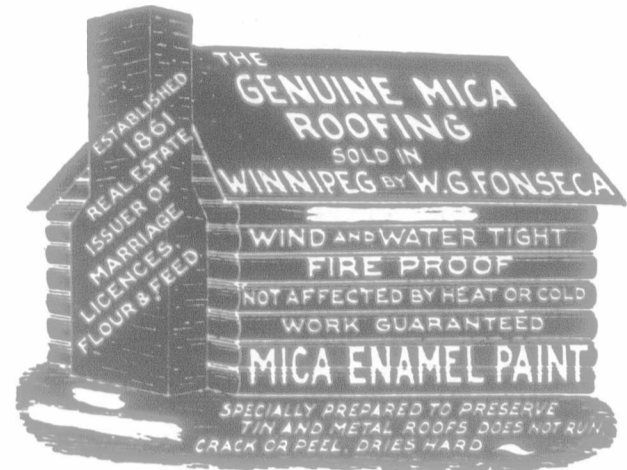 ESTABLISHED
1861
REAL ESTATE
ISSUER OF
MARRIAGE
LICENCES.
FLOUR & FEED.
THE
GENUINE MICA
ROOFING
SOLD IN
WINNIPEG BY W.G. FONSECA
WIND AND WATER TIGHT
FIRE PROOF
NOT AFFECTED BY HEAT OR COLD
WORK GUARANTEED
MICA ENAMEL PAINT
SPECIALLY PREPARED TO PRESERVE
TIN AND METAL ROOFS DOES NOT RUN,
CRACK OR PEEL, DRIES HARD